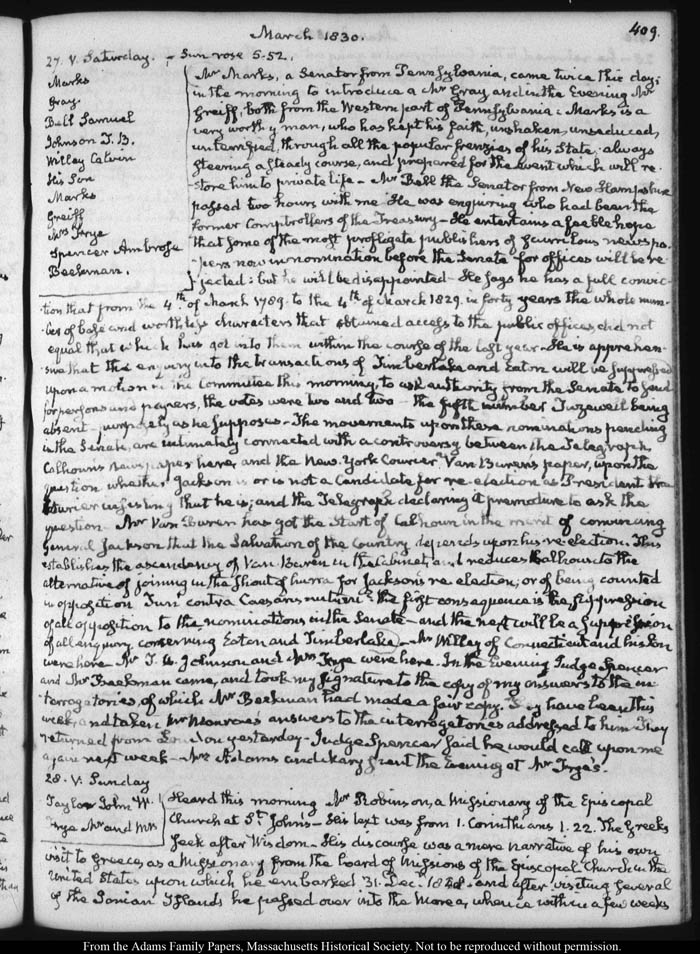 409.
March 1830.
27. V. Saturday. - Sun rose 5-52.
Marks
Gray.
Bell Samuel
Johnson T. B.
Willey Calvin
His Son
Marks
Greiff
Mrs Frye
Spencer Ambrose
Beekman.
Mr Marks, a Senator from Pennsylvania, came twice this day;
in the morning to introduce a Mr Gray and in the Evening Mr
Greiff, both from the Western part of Pennsylvania: Marks is a
very worthy man, who has kept his faith, unshaken, unseduced,
unterrified, through all the popular frenzies of his State: always
steering a steady course, and prepared for the event which will re-
store him to private life - Mr Bell the Senator from New Hampshire
passed two hours with me. He was enquiring who had been the
former Comptrollers of the Treasury - He entertains a feeble hope
that some of the most profligate publishers of scurrilous newspa-
-pers now in nomination before the Senate for offices will be re-
jected: but he will be disappointed - He says he has a full convic-
tion that from the 4th of March 1789. to the 4th of March 1829. in forty years the whole num-
-ber of base and worthless characters that obtained access to the public offices, did not
equal that which has got into them within the course of the last year - He is apprehen-
-sive that the enquiry into the transactions of Timberlake and Eaton will be suppressed
upon a motion in the Committee this morning, to ask authority from the Senate to send
for persons and papers, the votes were two and two - the fifth member Tazewell being
absent - purposely as he supposes - The movements upon these nominations pending
in the Senate, are intimately connected with a controversy between the Telegraph,
Calhoun's newspaper here, and the New-York Courier, Van Buren's paper, upon the
question whether Jackson is or is not a Candidate for re-election as President - the
Courier insisting that he is; and the Telegraph declaring it premature to ask the
question. Mr Van Buren has got the start of Calhoun in the merit of convincing
General Jackson that the Salvation of the Country depends upon his re-election. This
establishes the ascendency of Van Buren in the Cabinet, and reduces Calhoun to the
alternative of joining in the shout of hurra for Jackson's re-election, or of being counted
in opposition. the first consequence is the suppression
of all opposition to the nominations in the Senate - and the next will be a suppression
of all enquiry concerning Eaton and Timberlake - Mr Willey of Connecticut and his Son
were here. Mr T. B. Johnson and Mrs Frye were here. In the evening Judge Spencer
and Mr Beekman came, and took my signature to the copy of my answers to the in-
terrogatories, of which Mr Beekman had made a fair copy. They have been this
week, and taken Mr Monroe's answers to the interrogatories addressed to him. They
returned from yesterday - Judge Spencer said he would call upon me
again next week - Mrs Adams and Mary spent the Evening at Mr Frye's.
28. V. Sunday
Taylor John W.
Frye Mr and Mrs
Heard this morning Mr Robinson, a Missionary of the Episcopal
Church at St John's - His text was from 1. Corinthians 1.22. The Greeks
seek after Wisdom - His discourse was a mere narrative of his own
visit to Greece, as a Missionary from the board of Missions of the Episcopal Church in the
United States upon which he embarked 31. Decr 1828 - and after visiting several
of the Ionian Islands he passed over into the Morea, whence within a few weeks
From the Adams Family Papers, Massachusetts Historical Society. Not to be reproduced without permission.